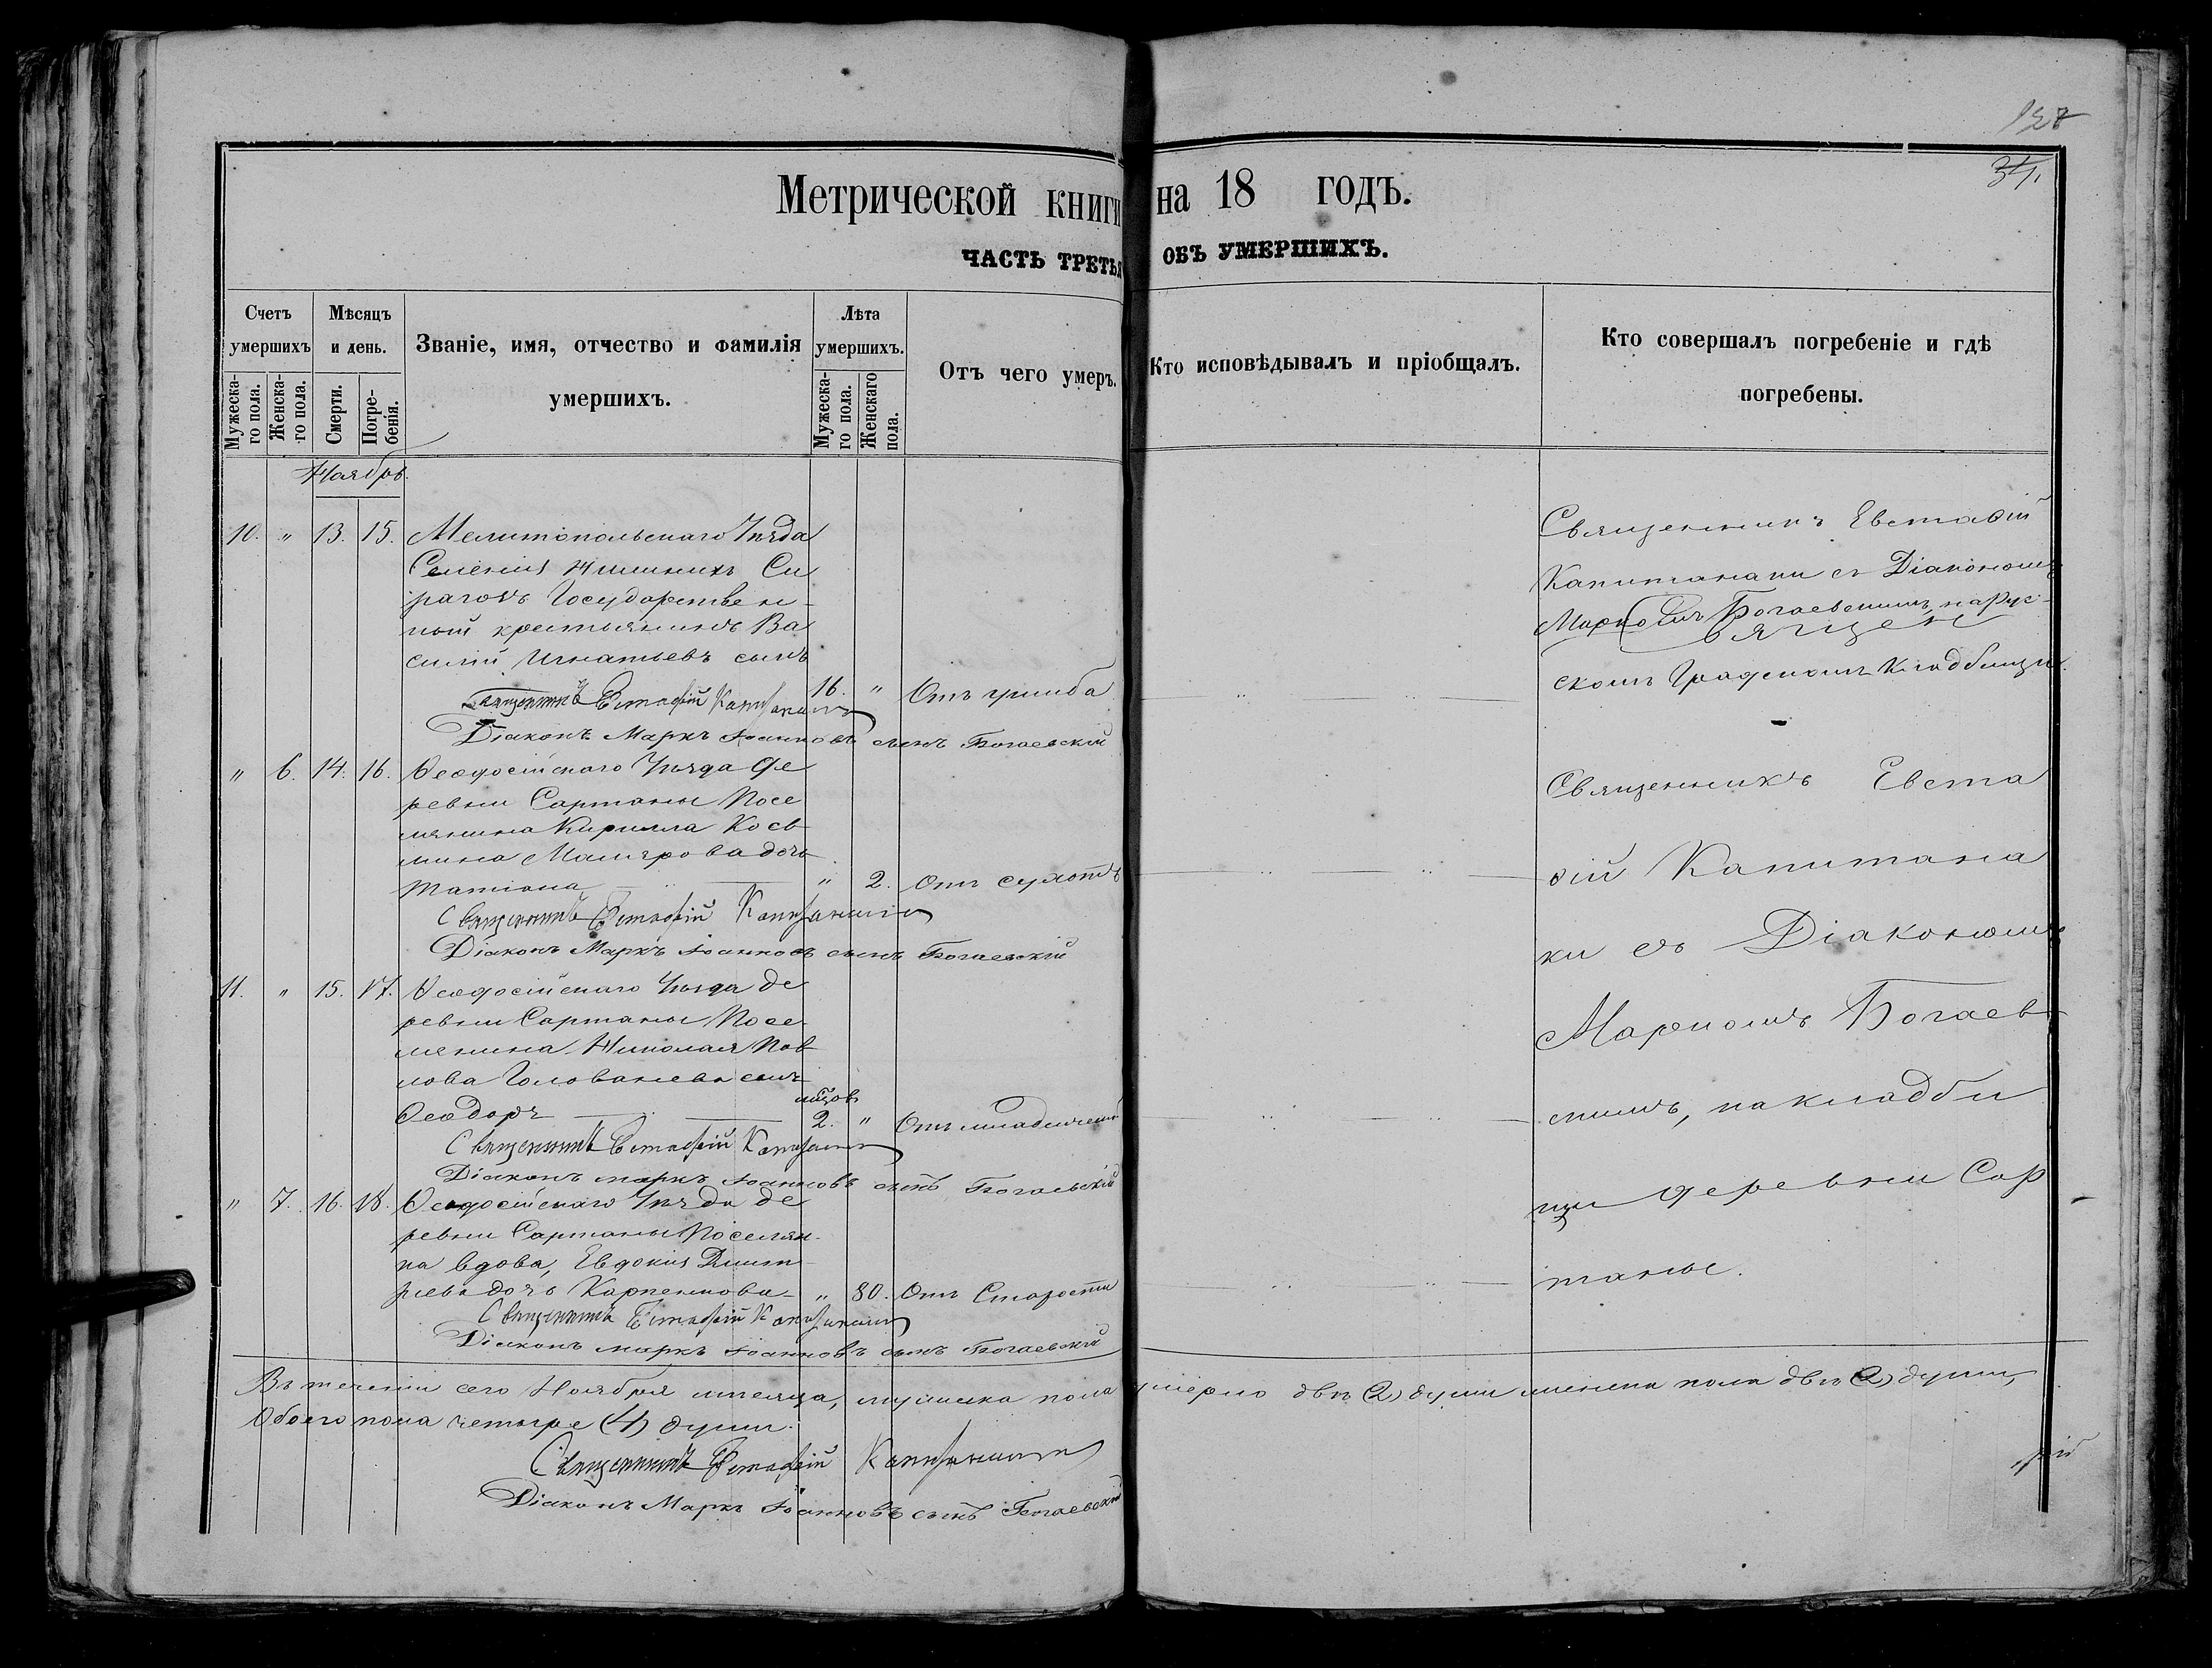 127
34.
Метрической книги на 18 годъ.
ЧАСТЬ ТРЕТЬЯ ОБЪ УМЕРШИХЪ.
Счетъ умершихъ
Мужеска-го пола.
Женска-го пола.
Мѣсяцъ и день.
Смерти.
Погре-бенія.
Званіе, имя, отчество и фамилія умершихъ.
Лѣта умершихъ.
Мужеска-го пола.
Женскаго пола.
Отъ чего умеръ.
Кто исповѣдывалъ и пріобщалъ.
Кто совершалъ погребеніе и гдѣ погребены.
Ноябрь.
10. " 13. 15. Мелитопольскаго Уѣзда
Селенія Нижнихъ Си
рагозъ Государствен-
ной крестьянинъ Ва
силій Игнатьевъ сынъ
16. " Отъ
Священникъ Евстафій Капитанаки
Діаконъ Маркъ Іоанновъ сынъ Богаевскій
Священникъ Евстафій
Капитанаки съ Діакономъ
Маркомъ Богаевскимъ на
скомъ Градскомъ Кладбищи.
" 6. 14. 16. Ѳеодосійскаго Уѣзда де
ревни Сартаны Посе
лянина Кирилла Косв
мина дочь
Татіана " 2. Отъ сухотъ
Священникъ Евстафій Капитанаки
Діаконъ Маркъ Іоанновъ сынъ Богаевскій
11. " 15. 17. Ѳеодосійскаго Уѣзда де
ревни Сартаны Посе
лянина Николая Пав
лова Голованева сынъ
Ѳеодоръ мѣсяцов 2. " Отъ младенческой
Священникъ Евстафій Капитанаки
Діаконъ маркъ Іоанновъ сынъ Богаевскій
" 7. 16. 18. Ѳеодосійскаго Уѣзда де
ревни Сартаны Поселян-
ка вдова, Евдокія Дмит
ріева дочь Карпенкова " 80. Отъ Старости
Священникъ Евстафій Капитанаки
Діаконъ маркъ Іоанновъ сынъ Богаевскій
Священникъ Евста
фій Капитана
ки съ Діакономъ
Маркомъ Богаев
скимъ, на кладби
щи деревни Сар
таны.
Въ теченіи сего Ноября мѣсяца, мужеска пола умерло двѣ (2) души женска пола двѣ (2) души,
Обоего пола четыре (4) души.
Священникъ Евстафій Капитанаки
Діаконъ Маркъ Іоанновъ сынъ Богаевскій